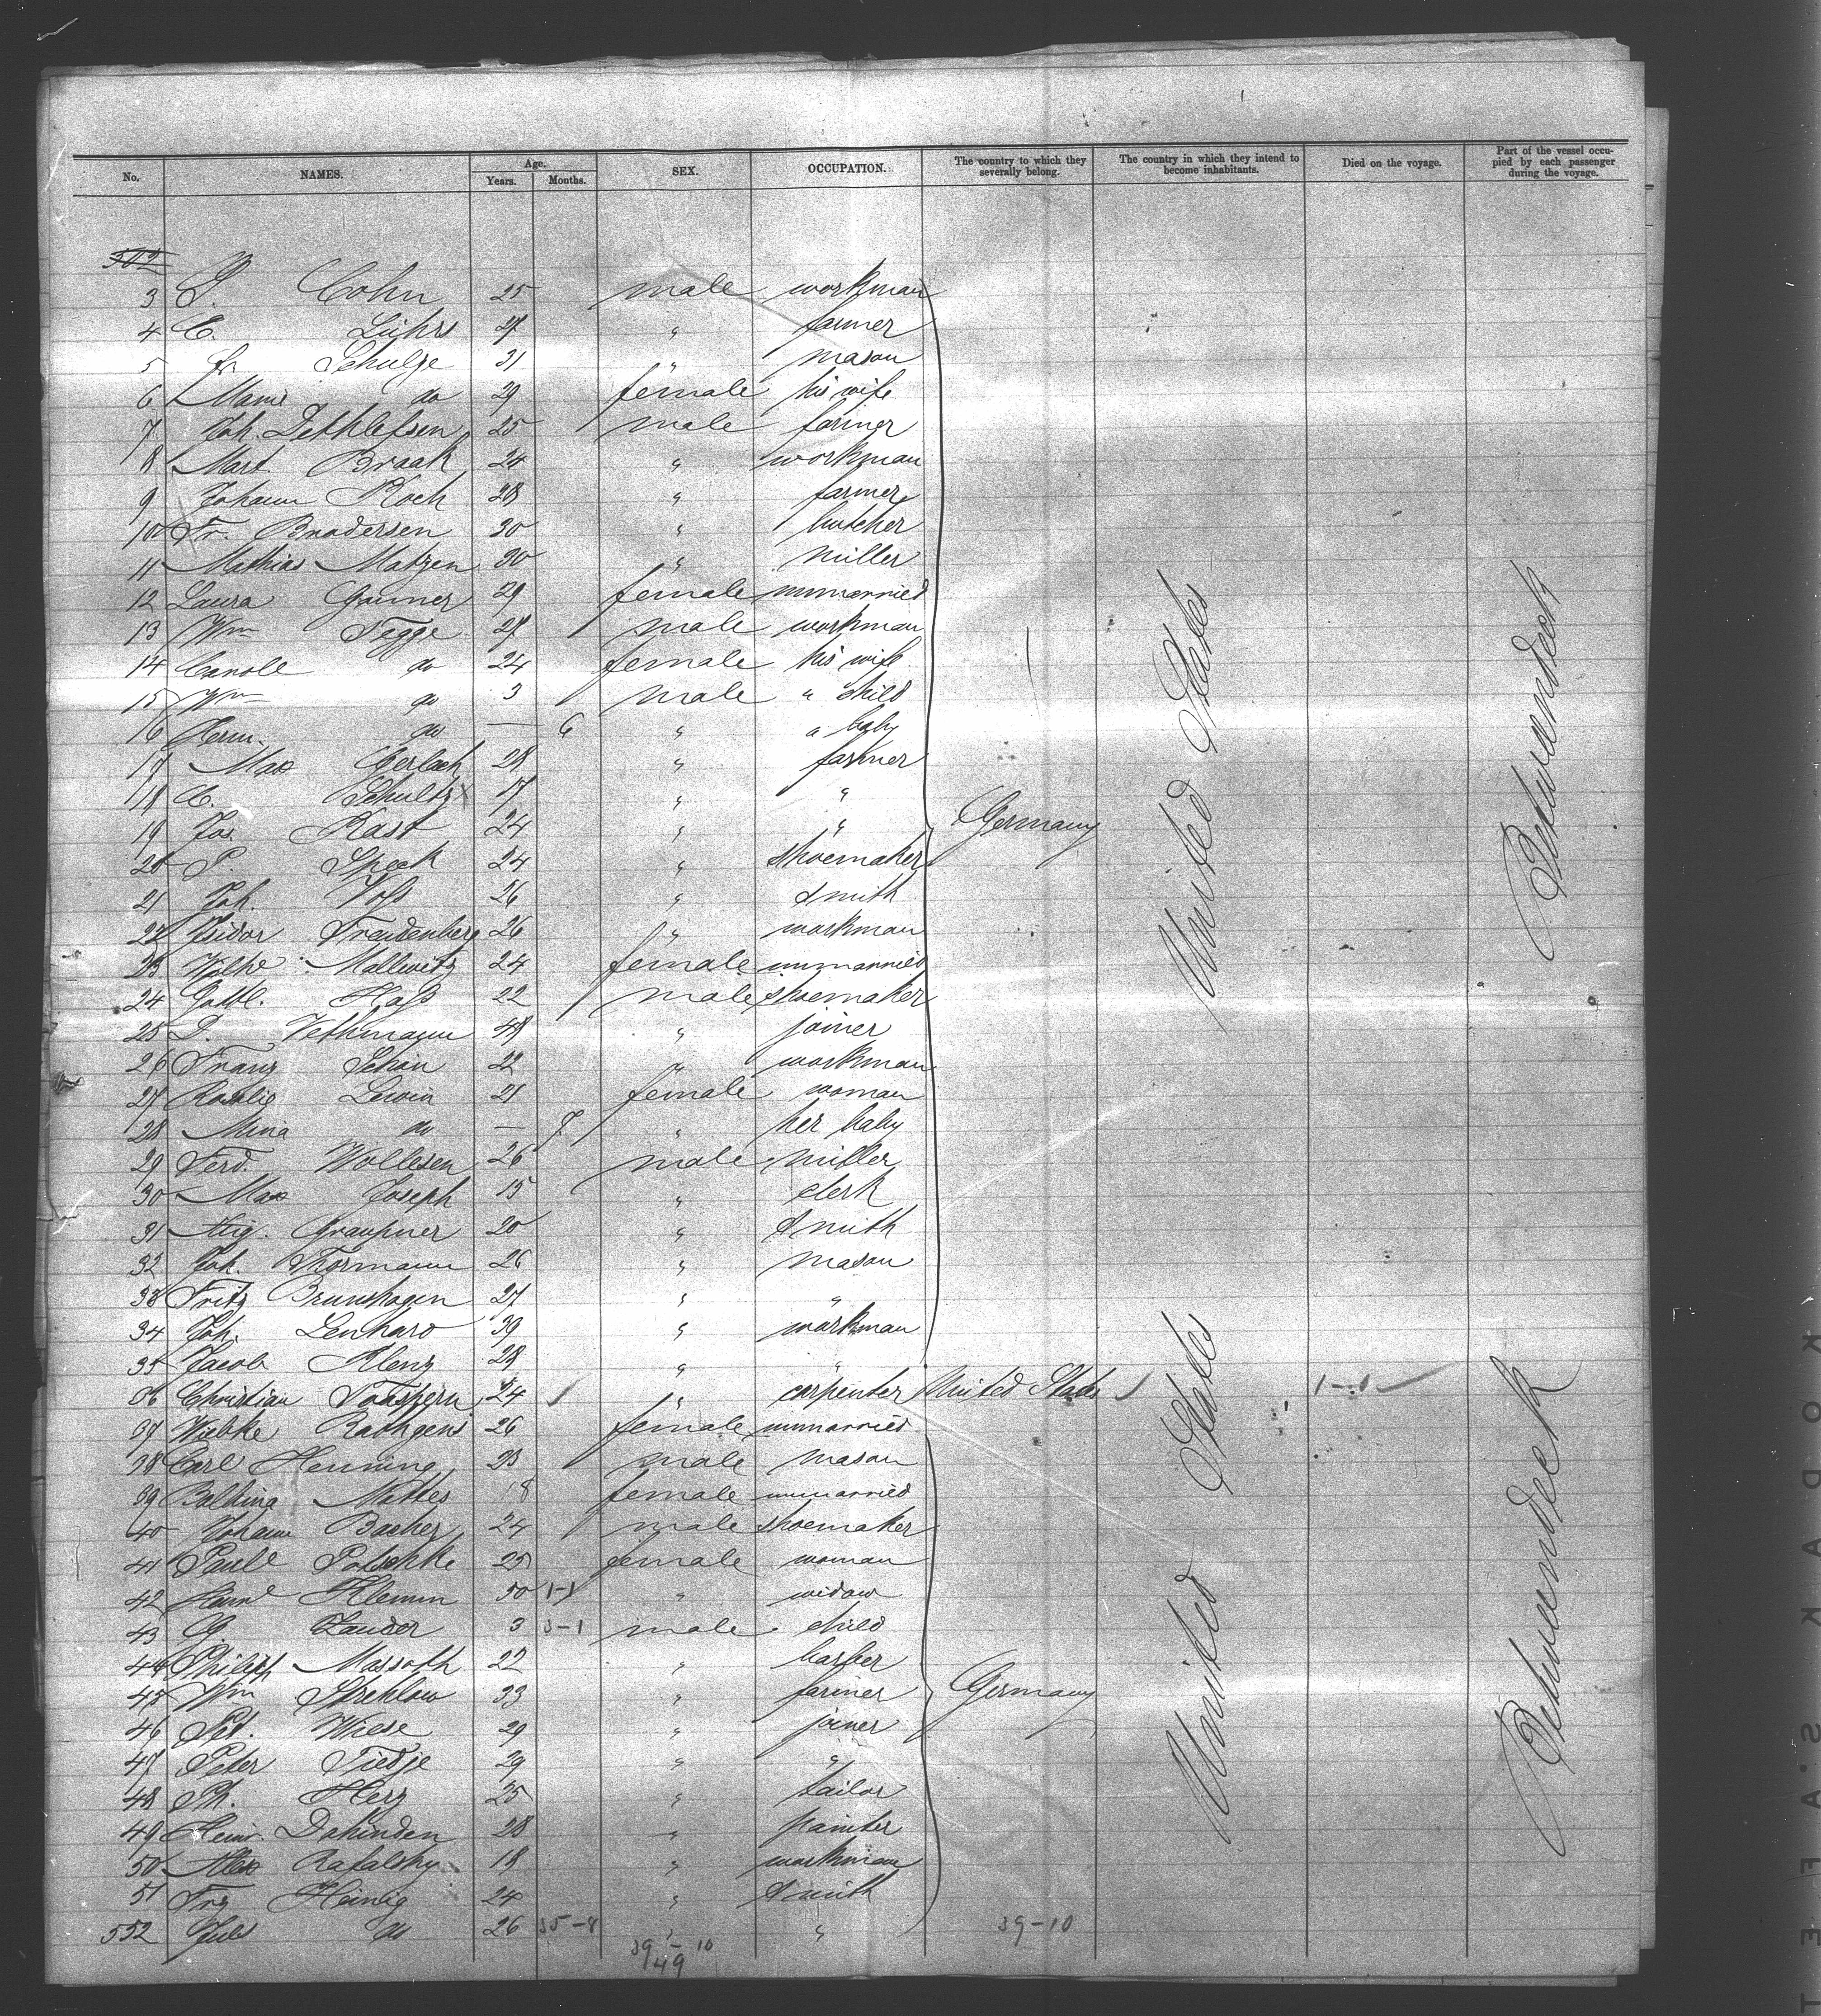 No. NAMES. Age. Years. Months. SEX. OCCUPATION. The country to which they severally belong. The country in which they intend to become inhabitants. Died on the voyage. Part of the vessel occupied by each passenger during the voyage.
502
3 Cohn 25 male workman
4 C. Lührs 27 " farmer
5 Fr. Schulze 31 " mason
6 Marie do 29 female his wife
7 Joh. Dethlefsen 25 male farmer
8 Mart. Braak 24 " workman
9 Johann Koch 28 " farmer
10 Fr. Brodersen 30 " butcher
11 Mathias Matzen 30 " miller
12 Laura 29 female unmarried
13 Wm Tegge 27 male workman
14 Carole do 24 female his wife
15 Wm do 3 male " child
16 Herm. do — 6 " " baby
17 Max Gerlach 28 " farmer
18 Schultz 17 " "
19 Jos. Rast 24 " "
Germany
20 P. Speck 24 " shoemaker
21 Joh. Voß 26 " smith
22 Isidor Freudenberg 26 " workman
23 Mallwitz 24 female unmarried
24 Gottl. Haß 22 male shoemaker
25 D. Vethmann 48 " joiner
26 Franz Schön 22 " workman
27 Rosalie Lewin 21 female woman
28 Mina do — " her baby
29 Ferd. Wollesen 26 male miller
30 Max Joseph 15 " clerk
31 Aug. Graupner 20 " smith
32 Joh. Thormann 26 " mason
33 Fritz Brunshagen 27 " "
34 Joh. Lenhard 39 " workman
35 Jacob Klenz 28 " "
36 Christian 24 " carpenter United States 1-1
37 Wiebke Rathgens 26 female unmarried
38 Carl Henning 23 male mason
39 Balbina Mattes 18 female unmarried
40 Johann Bacher 24 male shoemaker
41 Potschke 25 female woman
42 Klemm 50 1-1 " widow
43 G. Zander 3 3-1 male child
44 Philipp Massoth 22 " barber
45 Wm Strehlow 33 " farmer
Germany
46 Pet. Wiese 29 " joiner
47 Peter Tiedje 29 " "
48 Ph. Herz 25 " tailor
49 Heinr. Dahinden 28 " painter
50 Alex Rafalsky 18 " workman
51 Frz Heinig 24 " smith
552 Jul. do 26 35-8 " " 39-10
39-10
49
United States
United States
Zwischendeck
Zwischendeck
KODAK S.A.F.E.T